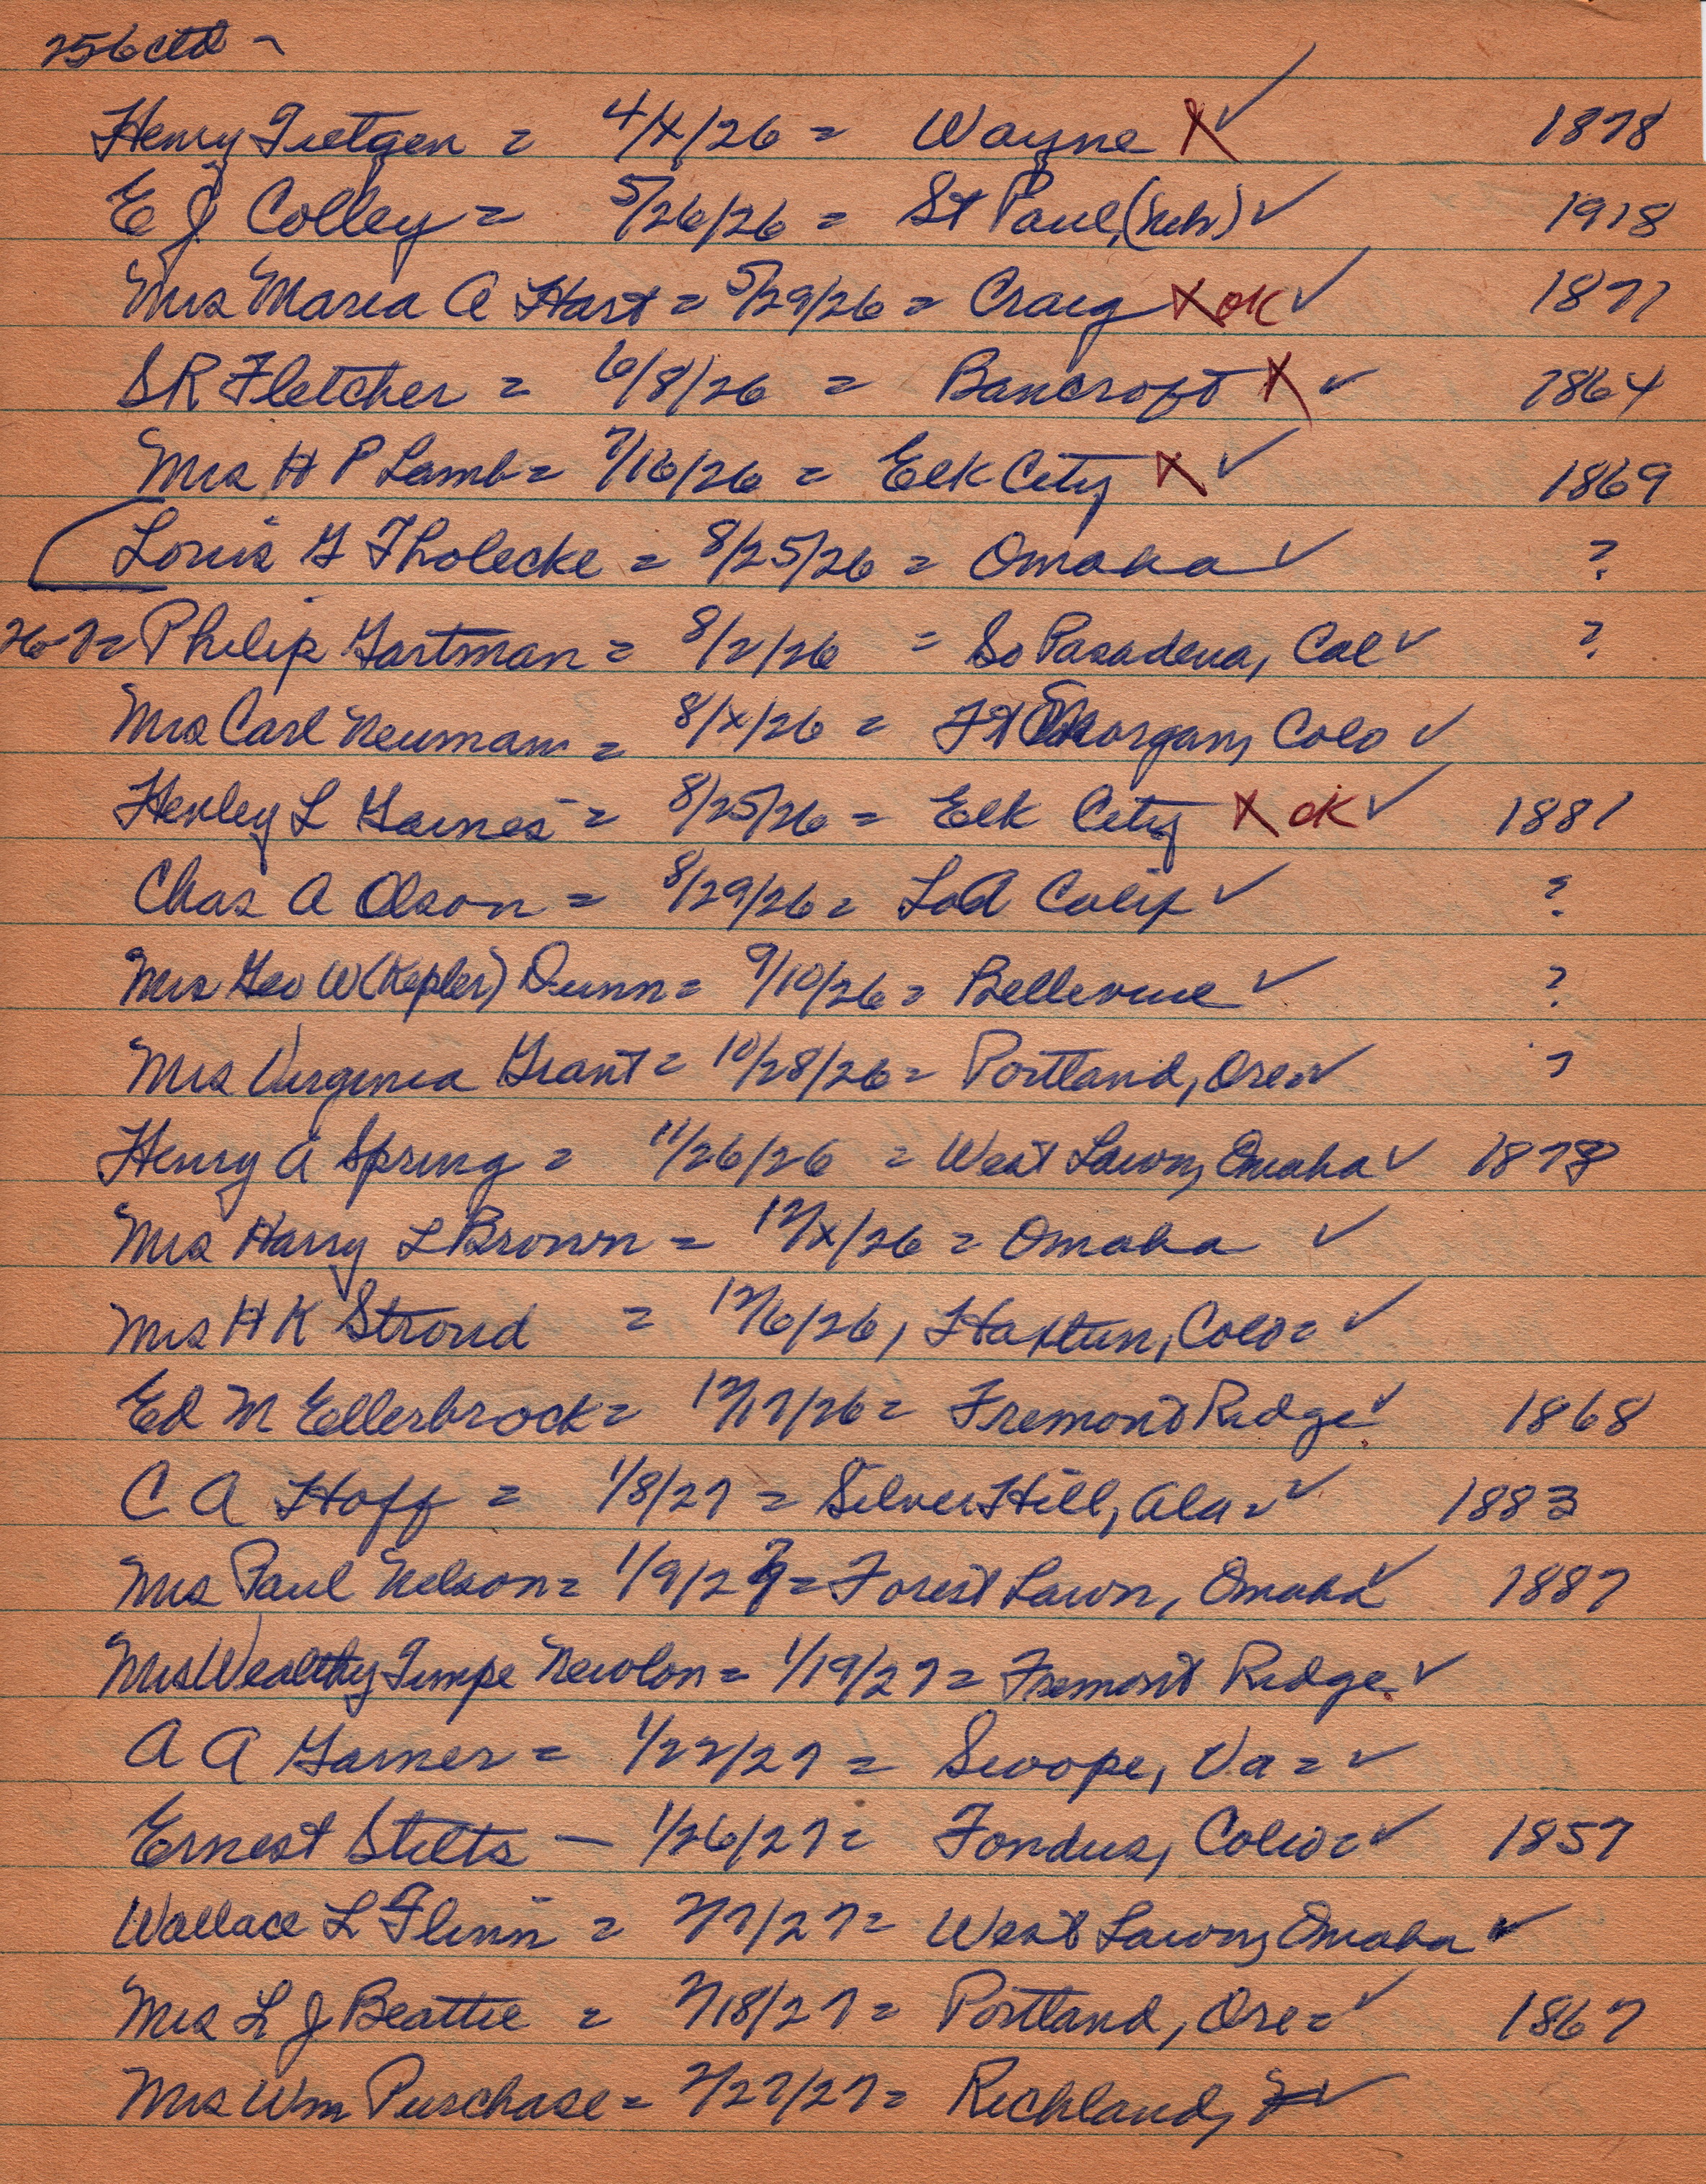 256 ctd ~
Henry Tietgen = 4/X/26 = Wayne X ✓ 1878
E J Colley = 5/26/26 = St Paul, (Neb) ✓ 1918
Mrs Maria A Hart = 5/29/26 = Craig X OK ✓ 1877
S R Fletcher = 6/8/26 = Bancroft X ✓ 1864
Mrs H P Lamb = 7/16/26 = Elk City X ✓ 1869
Louis G Tholecke = 8/25/26 = Omaha ✓ ?
267 = Philip Gartman = 8/2/26 = So Pasadena, Cal ✓ ?
Mrs Carl Neumann = 8/X/26 = Ft Morgan, Colo ✓
Henley L Gaines = 8/25/26 = Elk City X OK ✓ 1881
Chas A Olson = 8/29/26 = Calif ✓ ?
Mrs Geo W (Kepler) Dunn = 9/10/26 = Bellevue ✓ ?
Mrs Virginia Grant = 10/28/26 = Portland, Ore = ✓ ?
Henry A Spring = 11/26/26 = West Lawn, Omaha ✓ 1878
Mrs Harry L Brown = 12/X/26 = Omaha ✓
Mrs H K Stroud = 12/6/26, Haxtun, Colo = ✓
Ed M Ellerbrock = 12/17/26 = Fremont Ridge ✓ 1868
C A Hoff = 1/8/27 = Silver Hill, Ala = ✓ 1883
Mrs Paul Nelson = 1/9/27 = Forest Lawn, Omaha ✓ 1887
Mrs Wealthy Timpe Newlon = 1/19/27 = Fremont Ridge ✓
A A Garner = 1/22/27 = Swope, Va = ✓
Ernest Stilts — 1/26/27 = Fondus, Colo = ✓ 1857
Wallace L Flinn = 2/7/27 = West Lawn, Omaha ✓
Mrs L J Beattie = 2/18/27 = Portland, Ore = ✓ 1867
Mrs Wm Purchase = 2/27/27 = Richland, ✓